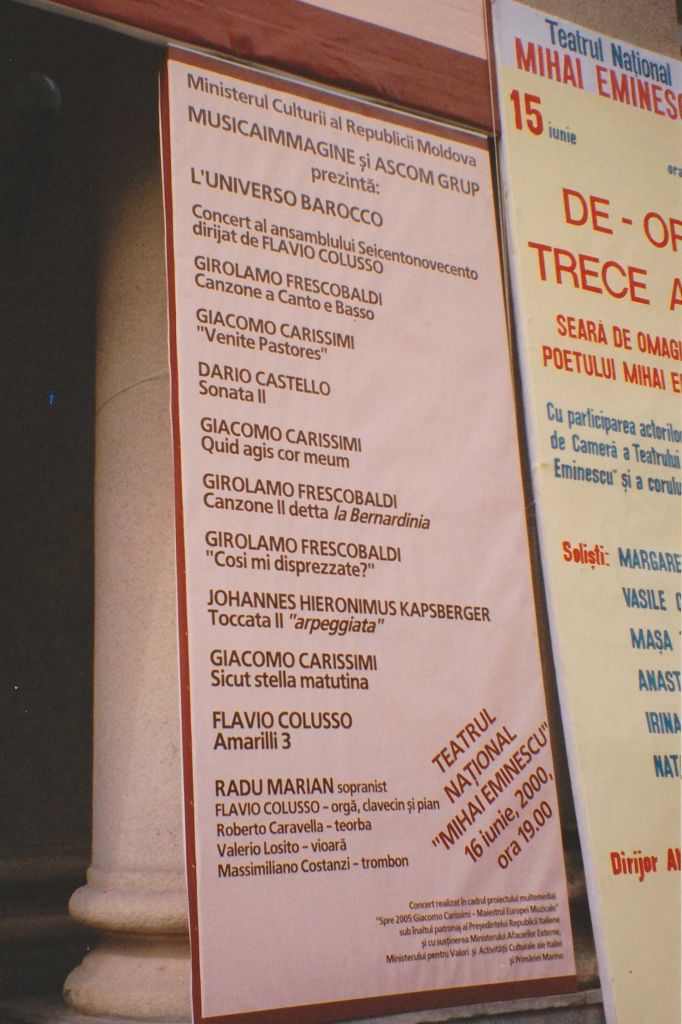 Ministerul Culturii al Republicii Moldova
MUSICAIMMAGINE și ASCOM GRUP
prezintă:
L'UNIVERSO BAROCCO
Concert al ansamblului Seicentonovecento
dirijat de FLAVIO COLUSSO
GIROLAMO FRESCOBALDI
Canzone a Canto e Basso
GIACOMO CARISSIMI
"Venite Pastores"
DARIO CASTELLO
Sonata II
GIACOMO CARISSIMI
Quid agis cor meum
GIROLAMO FRESCOBALDI
Canzone II detta la Bernardinia
GIROLAMO FRESCOBALDI
"Cosi mi disprezzate?"
JOHANNES HIERONIMUS KAPSBERGER
Toccata II "arpeggiata"
GIACOMO CARISSIMI
Sicut stella matutina
FLAVIO COLUSSO
Amarilli 3
RADU MARIAN sopranist
FLAVIO COLUSSO – orgă, clavecin și pian
Roberto Caravella – teorba
Valerio Losito – vioară
Massimiliano Costanzi – trombon
TEATRUL
NAȚIONAL
"MIHAI EMINESCU"
16 iunie, 2000,
ora 19.00
Concert realizat în cadrul proiectului multimedial
"Spre 2005:Giacomo Carissimi - Maiestrul Europei Muzicale"
sub înaltul patronaj al Președintelui Republicii Italiene
și cu susținerea Ministerului Afacerilor Externe,
Ministerului pentru Valori și Activități Culturale ale Italiei
și Primăriei Marino
Teatrul Național
MIHAI EMINESC
15 iunie
ora
DE - OR
TRECE A
SEARĂ DE OMAGI
POETULUI MIHAI E
Cu participarea actorilo
de Cameră a Teatrului
Eminescu" și a corulu
Soliști: MARGARE
VASILE
MAȘA
ANAST
IRINA
NAT
Dirijor Al